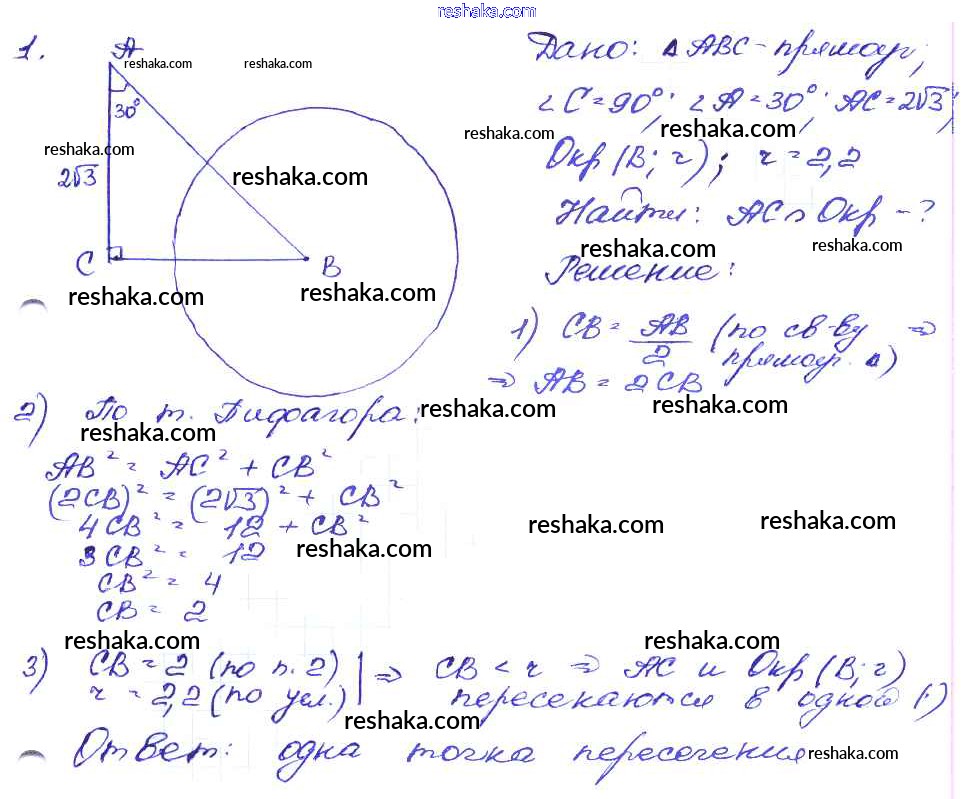 reshaka.com
1.
A
reshaka.com
reshaka.com
30°
reshaka.com
2√3
reshaka.com
C
B
reshaka.com
reshaka.com
Дано: ΔABC - прямоуг;
reshaka.com
∠C = 90°; ∠A = 30°; AC = 2√3;
reshaka.com
Окр (B; r); r = 2,2
Найти: AC ∩ Окр - ?
reshaka.com
reshaka.com
Решение:
1) CB = AB/2 (по св-ву прямоуг. Δ) ⇒
⇒ AB = 2CB
reshaka.com
reshaka.com
2) По т. Пифагора:
reshaka.com
AB² = AC² + CB²
(2CB)² = (2√3)² + CB²
4CB² = 12 + CB²
reshaka.com
reshaka.com
3CB² = 12
reshaka.com
CB² = 4
CB = 2
reshaka.com
reshaka.com
3) CB = 2 (по п. 2) | ⇒ CB < r ⇒ AC и Окр (B; r)
r = 2,2 (по усл.) | пересекаются в одной (·)
reshaka.com
Ответ: одна точка пересечения
reshaka.com